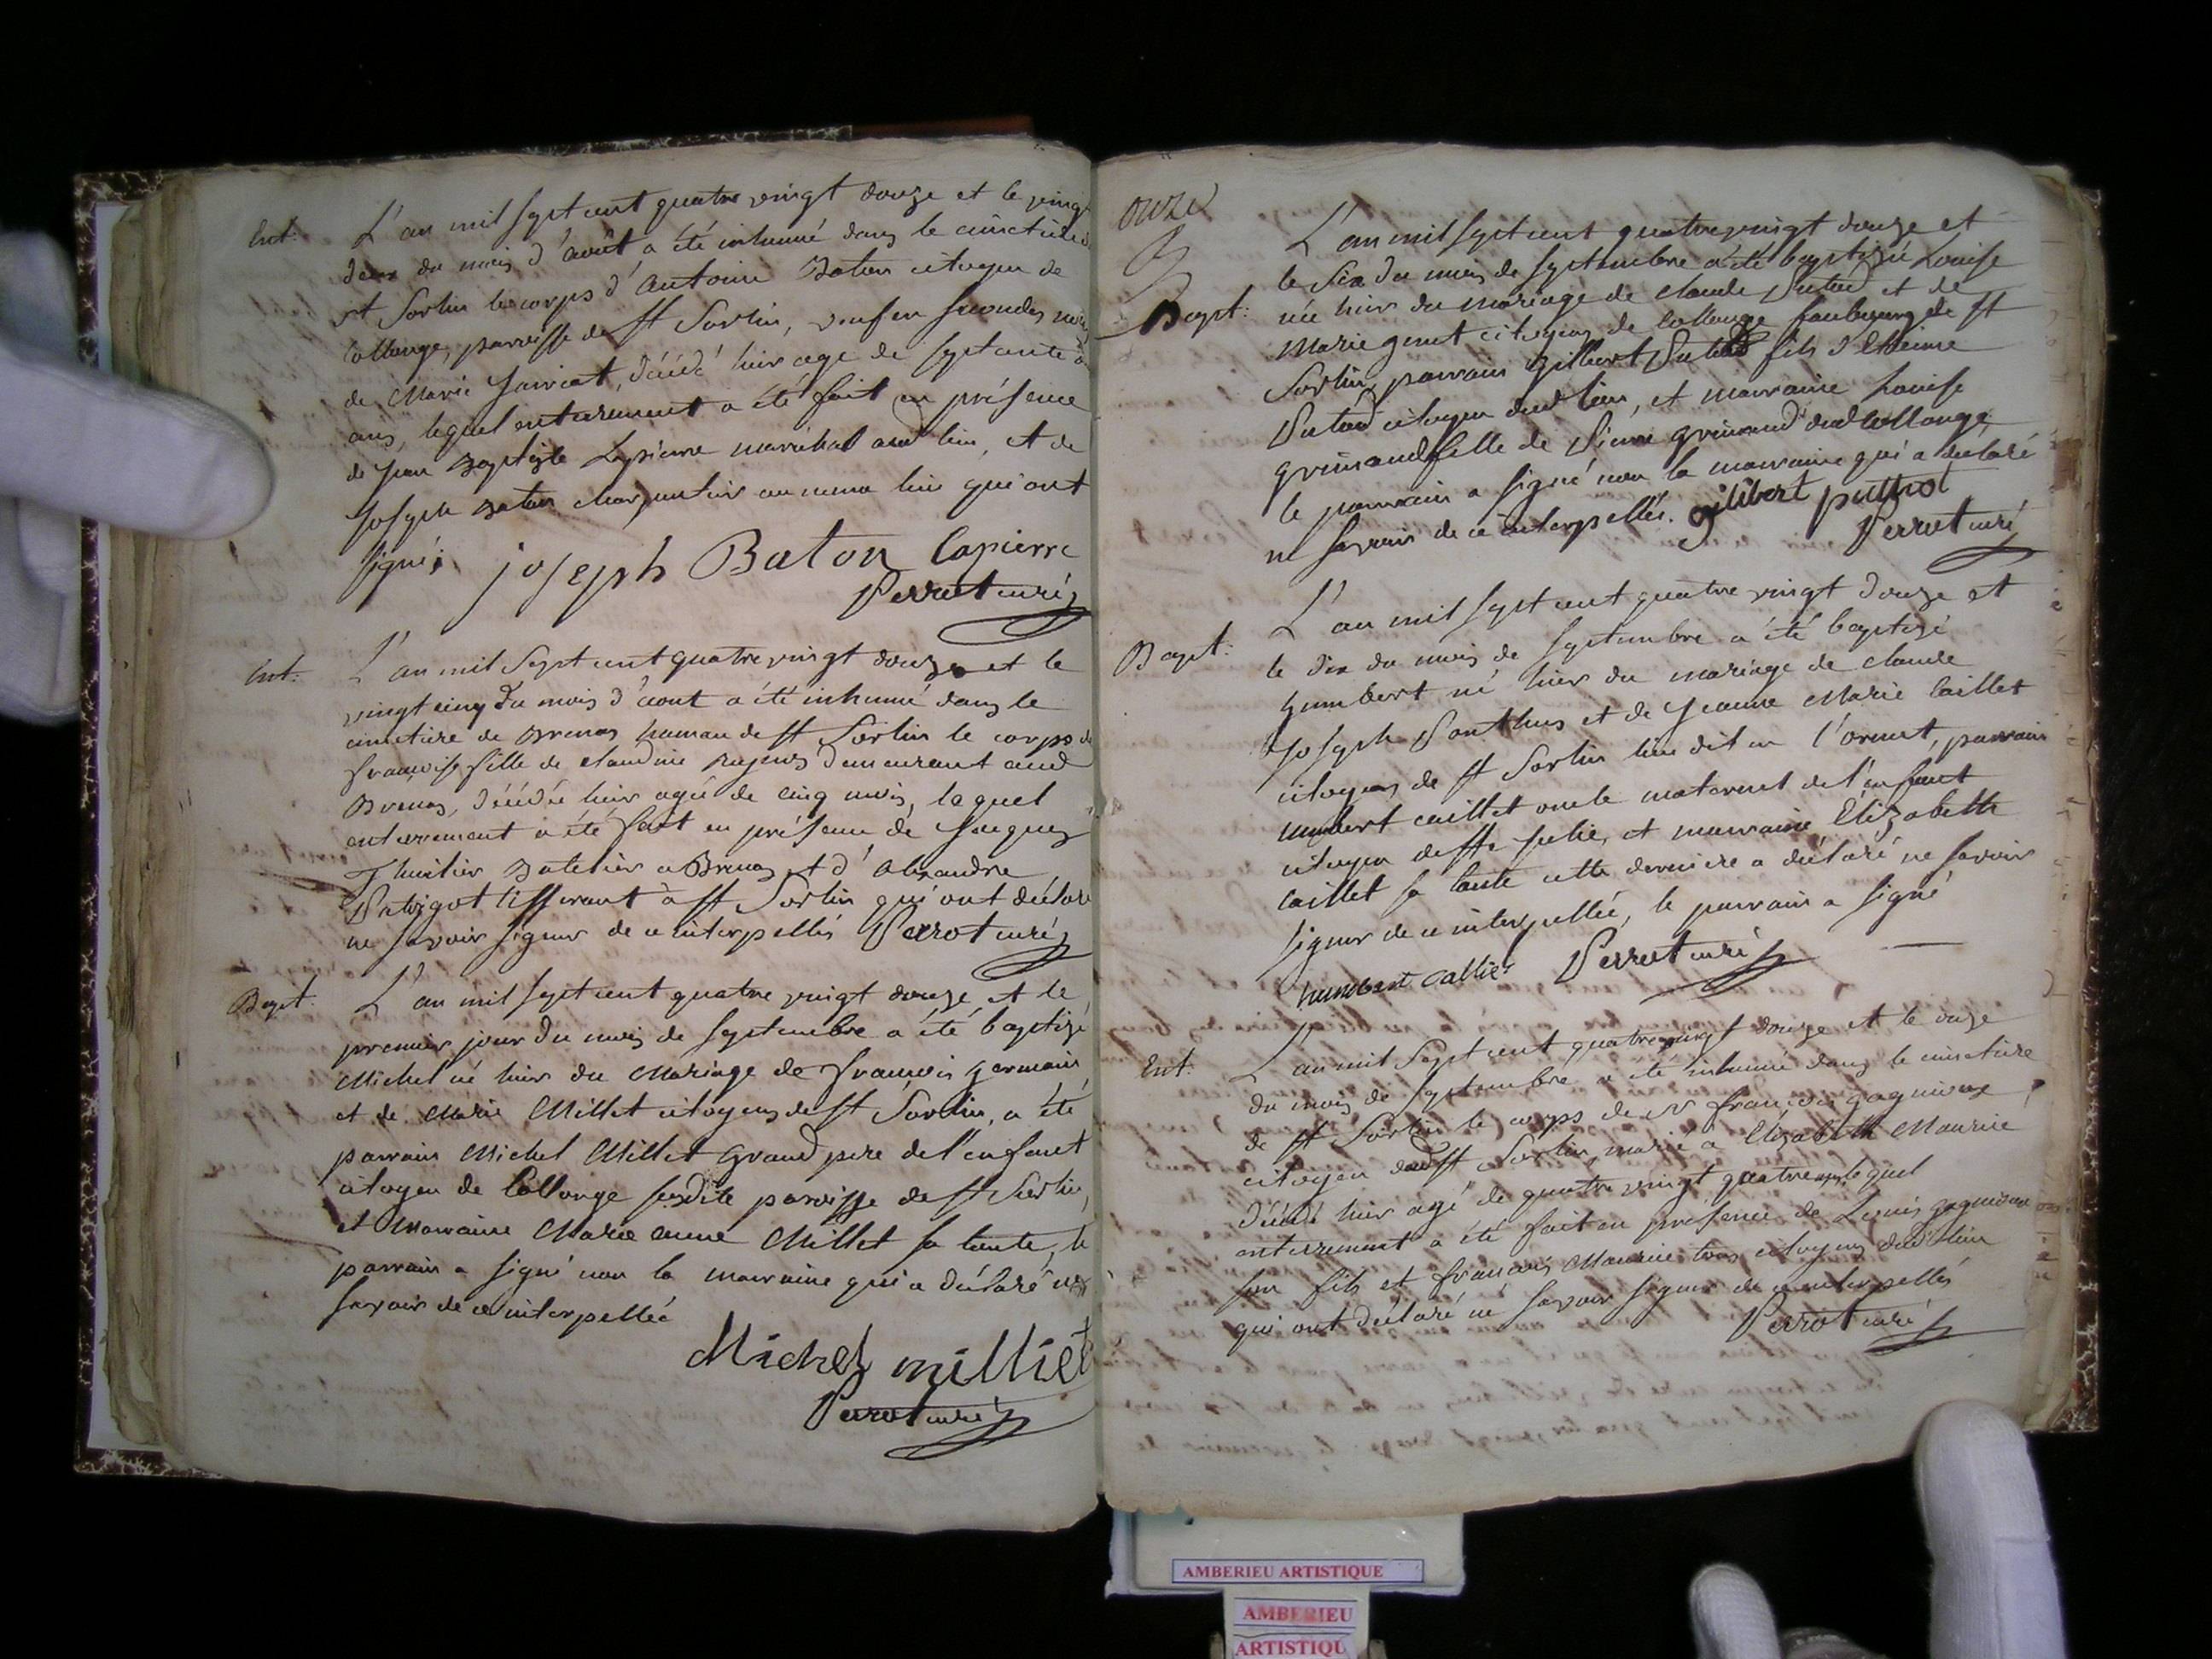 Ent: L'an mil sept cent quatre vingt douze et le vingt
deux du mois d'août a été inhumé dans le cimetière de
st Sorlin le corps d'Antoine Baton citoyen de
Collonge, paroisse de st Sorlin, veuf en secondes noces
de Marie Janviat, décédé hier agé de septante
ans, lequel enterrement a été fait en présence
de jean Baptiste Lapierre maréchal aud lieu, et de
joseph Baton charpentier au meme lieu qui ont
signé; joseph Baton lapierre
Perrot curé
Ent: L'an mil Sept cent quatre vingt douze et le
vingt cinq du mois d'aout a été inhumé dans le
cimetiere de Brenas hameau de st Sorlin le corps de
françoise fille de claudine demeurant aud
Brenas, décédée hier agée de cinq mois, lequel
enterrement a été fait en présence de jacques
Thuilier Batelier a Brenas et d'Alexandre
Tisserant à st Sorlin qui ont déclaré
ne savoir signer de ce interpellés Perrot curé
Bapt: L'an mil sept cent quatre vingt douze et le
premier jour du mois de septembre a été baptizé
Michel né hier du Mariage de françois germain
et de Marie Millet citoyens de st Sorlin, a été
parrain Michel Millet grand pere de l'enfant
citoyen de Collonge susdite paroisse de st Sorlin,
et Marraine Marie anne Millet sa tante, le
parrain a signé non la marraine qui a déclaré ne
savoir de ce interpellée
Michel milliet
Perrot curé
onze
L'an mil sept cent quatre vingt douze et
le six du mois de septembre a été baptizée Louise
Bapt: née hier du mariage de claude Putod et de
Marie genet citoyens de Collonge faubourg de st
Sorlin, parrain gilbert Putod fils d'Etienne
Putod citoyen dud lieu, et marraine Louise
grimand fille de Pierre grimand dud Collonge,
le parrain a signé non la marraine qui a déclaré
ne savoir de ce interpellés. gilibert puthod
Perrot curé
L'an mil sept cent quatre vingt douze et
Bapt: le dix du mois de septembre a été baptizé
humbert né hier du mariage de claude
joseph Ponthus et de jeanne Marie Caillet
citoyens de st Sorlin lieu dit en l'ormet, parrain
umbert caillet oncle maternel de l'enfant
citoyen de ste julie, et marraine Elizabeth
Caillet sa tante cette derniere a déclaré ne savoir
signer de ce interpellée, le parrain a signé
humbert callier Perrot curé
Ent: L'an mil Sept cent quatre vingt douze et le onze
du mois de Septembre a été inhumé dans le cimetiere
de st Sorlin le corps de Sr françois gagnieux
citoyen dud st Sorlin, marié a Elizabeth Maurice
décédé hier agé de quatre vingt quatre ans, lequel
enterrement a été fait en présence de Louis gagnieux
son fils et francois Maurice tous citoyens dud lieu
qui ont déclaré ne savoir signer de ce interpellés
Perrot curé
AMBERIEU ARTISTIQUE
AMBERIEU
ARTISTIQU